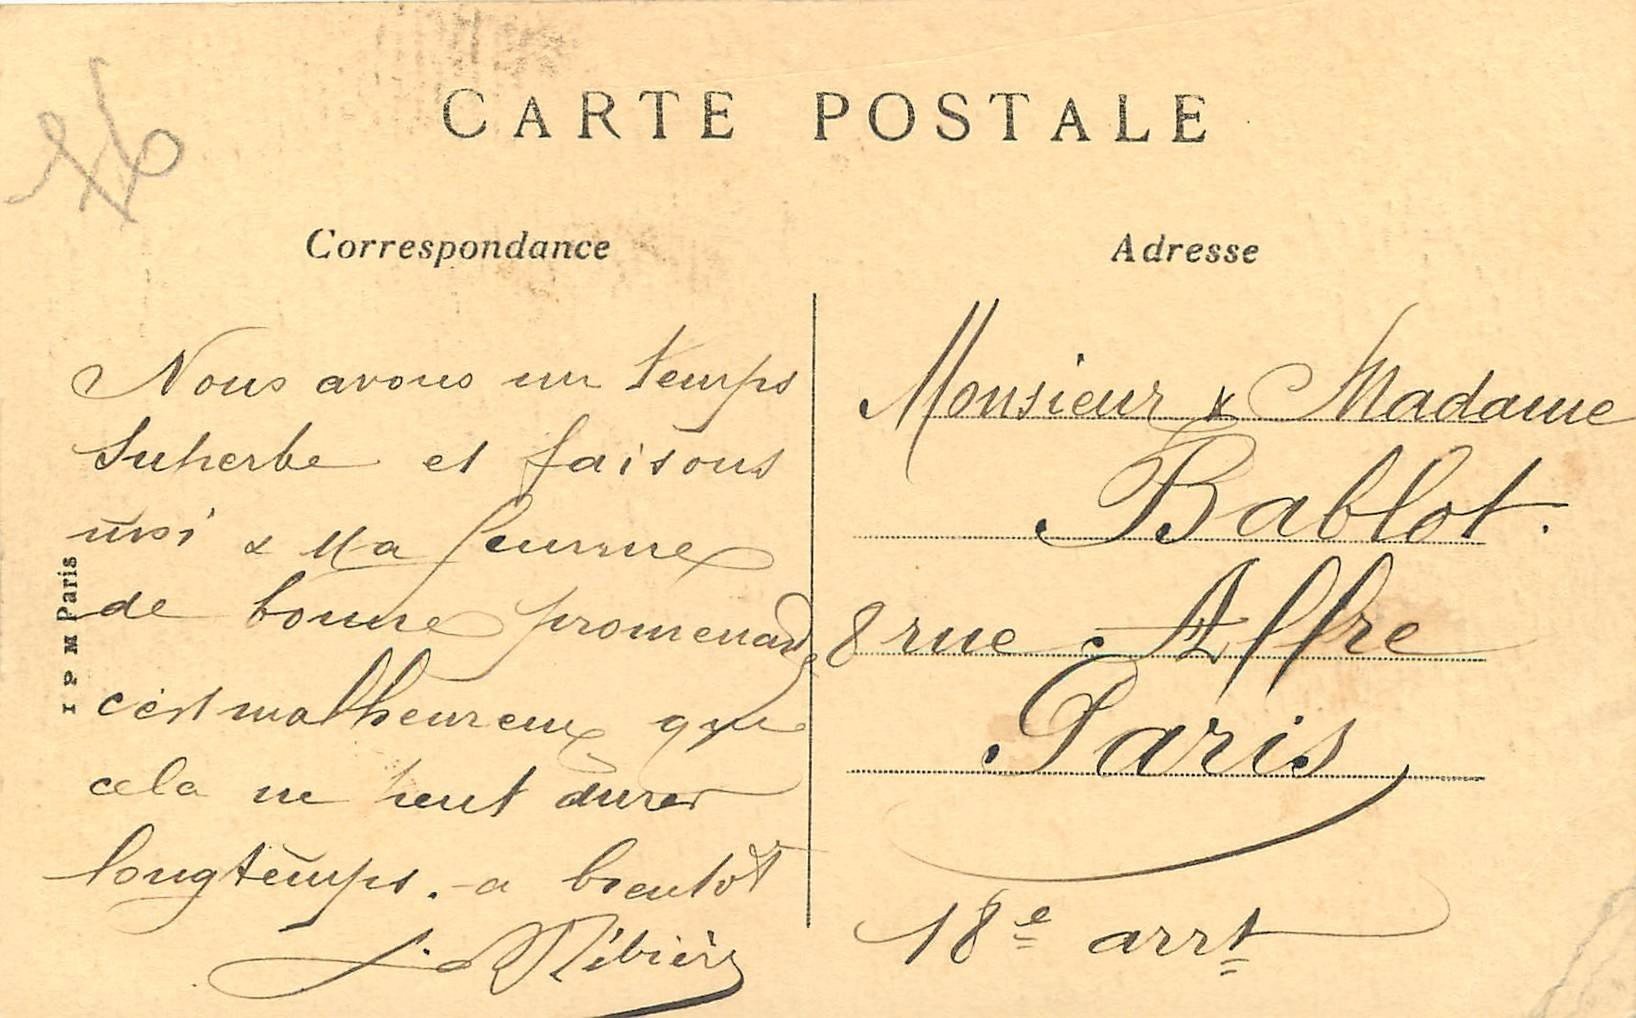 CARTE POSTALE
Correspondance
Nous avons un temps
Superbe et faisons
moi & Ma femme
de bonne promenade
c'est malheureux que
cela ne peut durer
longtemps. a bientôt
J. Ribière
I P M Paris
Adresse
Monsieur & Madame
Bablot.
8 rue Affre
Paris
18e arrt